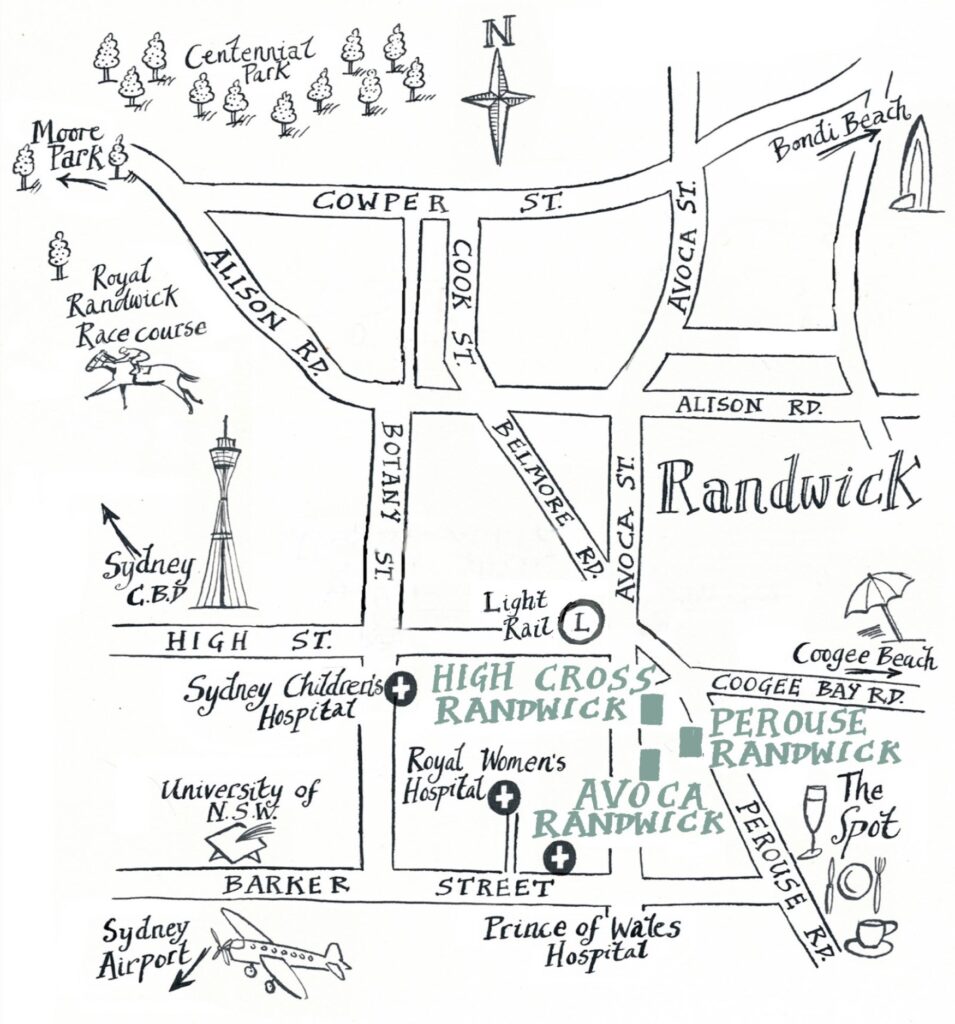 N
Centennial
Park
Moore
Park
Bondi Beach
COWPER ST.
AVOCA ST.
COOK ST.
ALISON RD.
Royal
Randwick
Race course
ALISON RD.
BOTANY ST.
BELMORE RD.
AVOCA ST.
Randwick
Sydney
C.B.D
Light
Rail
L
HIGH ST.
Coogee Beach
COOGEE BAY RD.
Sydney Children's
Hospital
HIGH CROSS
RANDWICK
PEROUSE
RANDWICK
Royal Women's
Hospital
University of
N.S.W.
AVOCA
RANDWICK
The
Spot
PEROUSE RD.
BARKER STREET
Sydney
Airport
Prince of Wales
Hospital